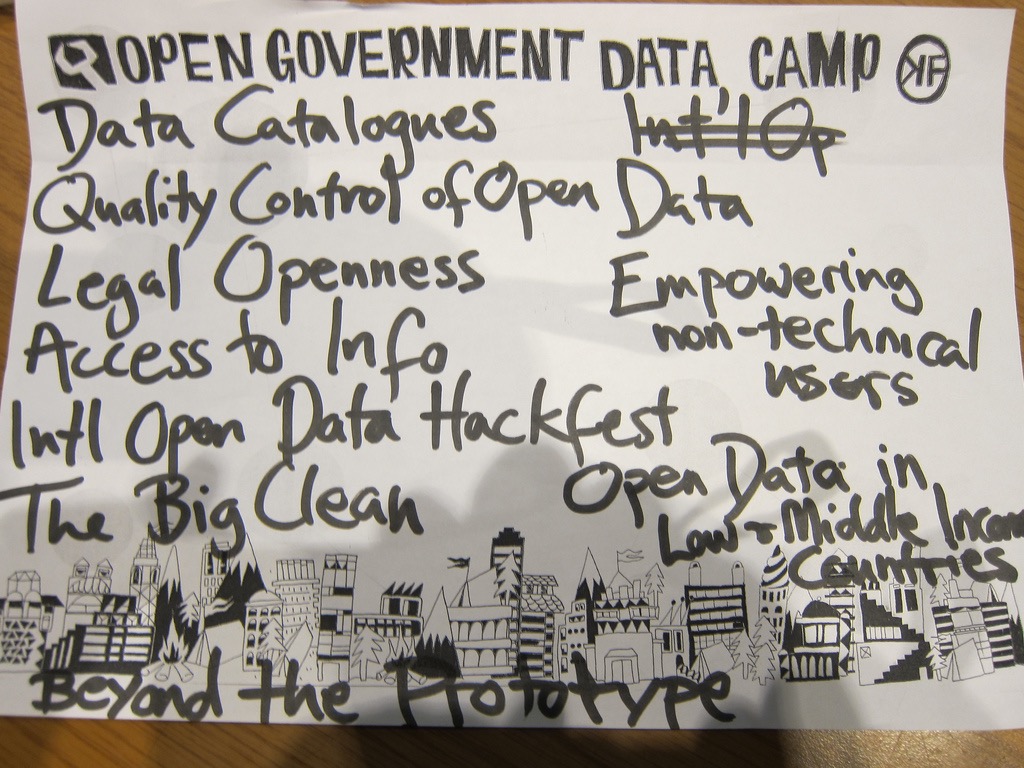 OPEN GOVERNMENT DATA CAMP
Data Catalogues
Int'l Op
Quality Control of Open Data
Legal Openness
Empowering
non-technical
users
Access to Info
Intl Open Data Hackfest
The Big Clean
Open Data in
Low + Middle Income
Countries
Beyond the Prototype